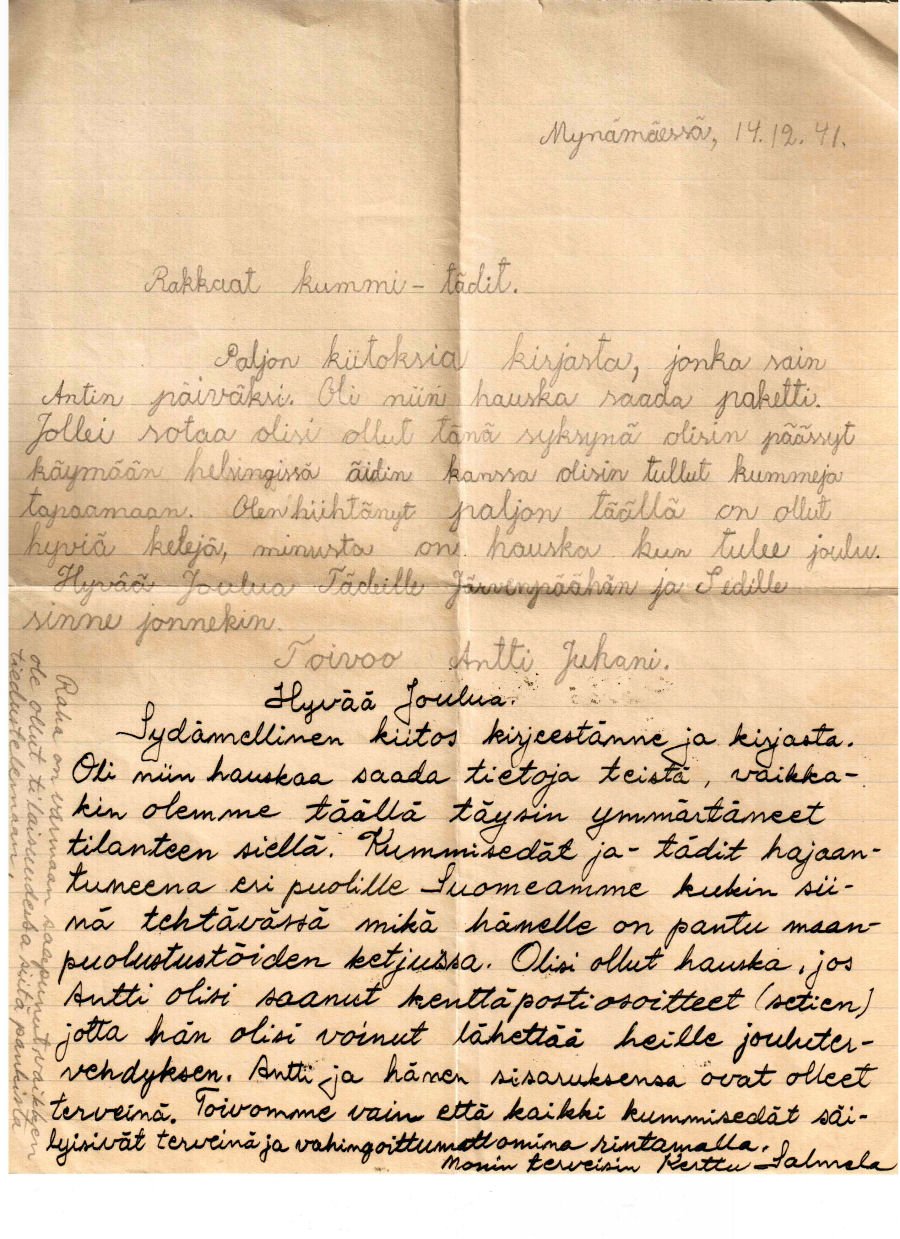 Mynämäessä, 14.12.41.
Rakkaat kummi-tädit.
Paljon kiitoksia kirjasta, jonka sain
Antin päiväksi. Oli niin hauska saada paketti.
Jollei sotaa olisi ollut tänä syksynä olisin päässyt
käymään helsingissä äidin kanssa olisin tullut kummeja
tapaamaan. Olen hiihtänyt paljon täällä on ollut
hyviä kelejä, minusta on hauska kun tulee joulu.
Hyvää Joulua Tädeille Järvenpäähän ja Sedille
sinne jonnekin.
Toivoo Antti Juhani.
Hyvää Joulua.
Sydämellinen kiitos kirjeestänne ja kirjasta.
Oli niin hauskaa saada tietoja teistä, vaikka-
kin olemme täällä täysin ymmärtäneet
tilanteen siellä. Kummisedät ja- tädit hajaan-
tuneena eri puolille Suomeamme kukin sii-
nä tehtävässä mikä hänelle on pantu maan-
puolustustöiden ketjussa. Olisi ollut hauska, jos
Antti olisi saanut kenttäpostiosoitteet (setien)
jotta hän olisi voinut lähettää heille jouluter-
vehdyksen. Antti ja hänen sisaruksensa ovat olleet
terveinä. Toivomme vain että kaikki kummisedät säi-
lyisivät terveinä ja vahingoittumattomina rintamalla.
Monin terveisin Kerttu Salmela
Raha on varmaan saapunut vaikken
ole ollut tilaisuudessa sitä pankista
tiedustelemaan.